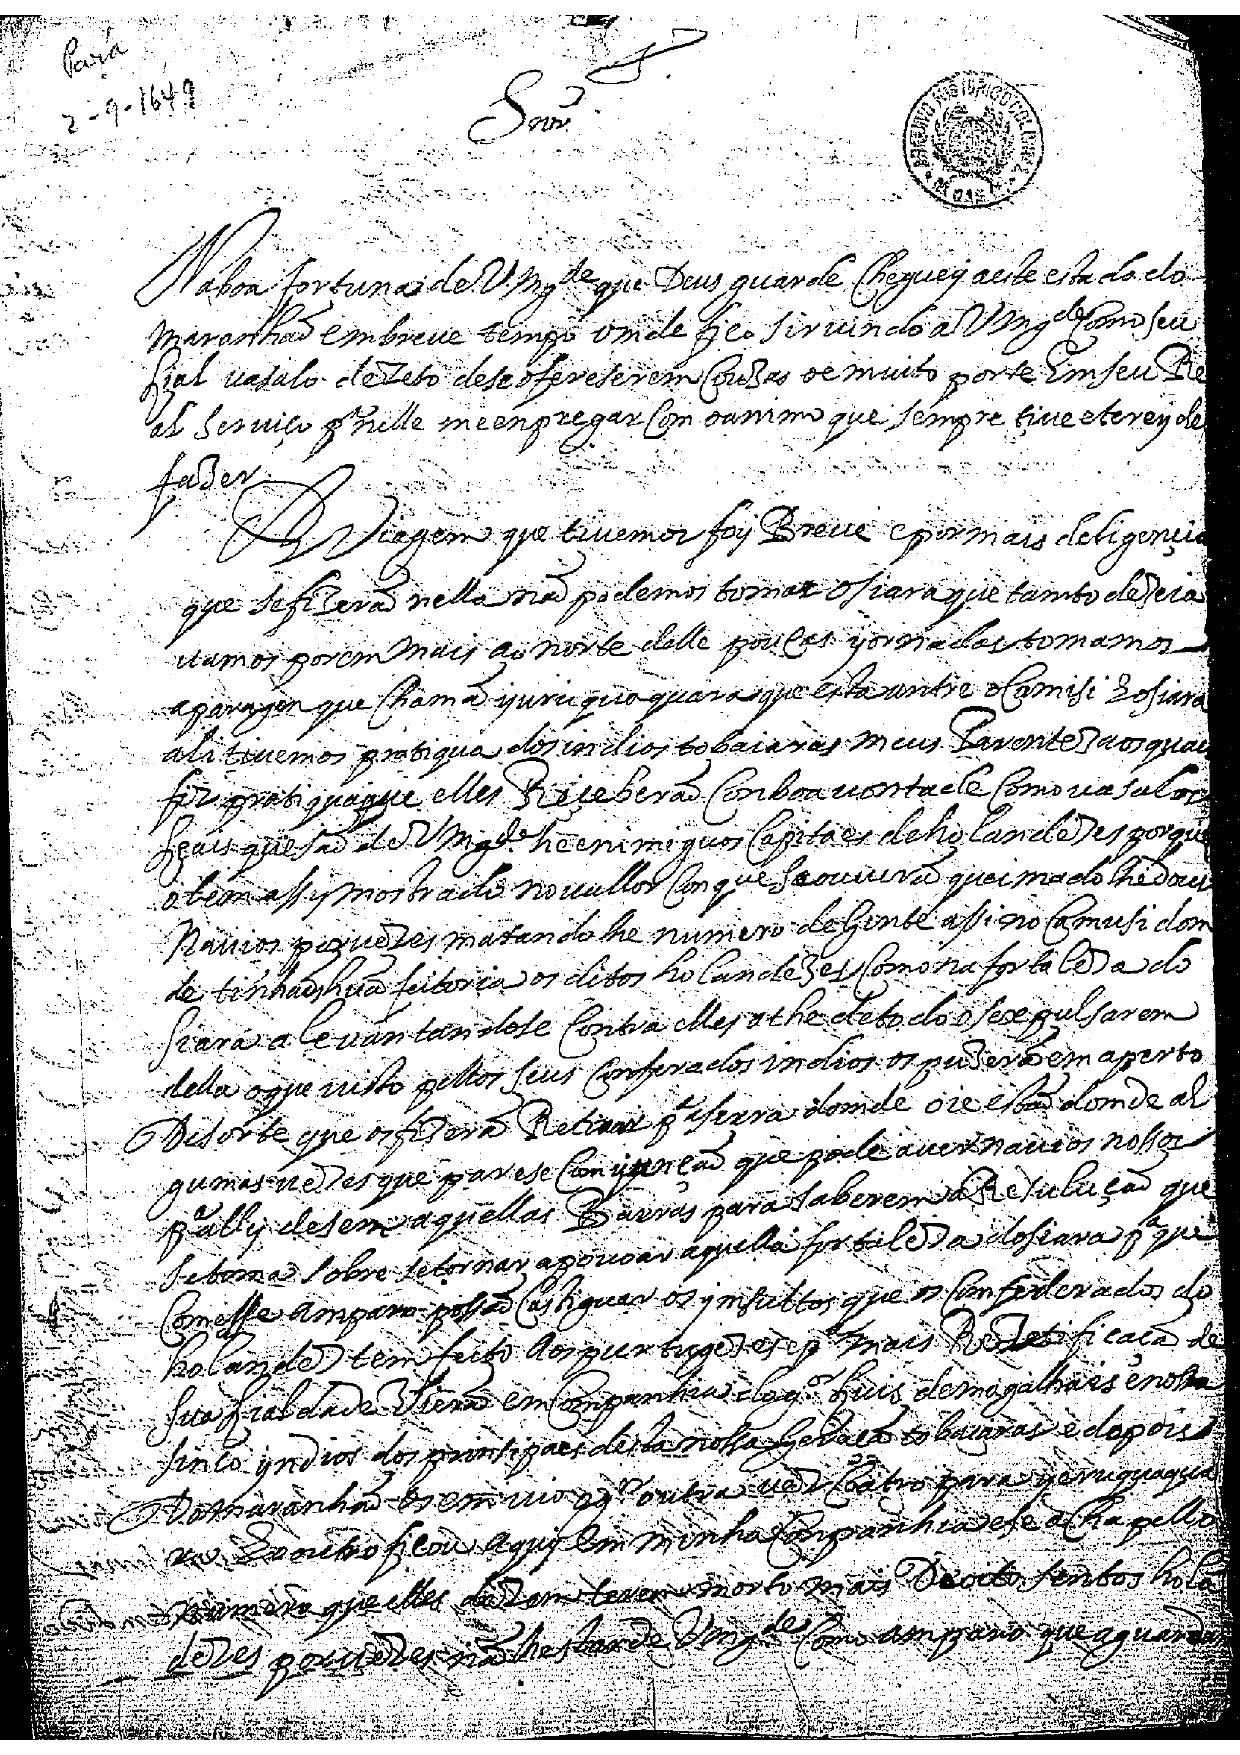 Pará
2-9-1649
Snor
ARQUIVO HISTORICO COLONIAL
Na boa fortuna de V Mgde que Deus guarde Cheguej a este estado do
Maranhaõ em breve tempo onde fico siruindo a V Mgde Como seu
fial vasalo dezeto de se ofereserem Couzas de muito porte Em seu Re
al serviço pa nelle me enpregar Com o animo que sempre tiue e terej de
fazer
A Viagem que tivemos foij Breue e por mais deligençia
que se fizeraõ nella naõ podemos tomar o siara que tamto dezeia
uamos porem mais ao norte delle poucas yornadas tomamos
a paragen que Chamaõ yuruquoquara que esta antre o Camisi E o siara
ali tiuemos pratiqua dos indios tobaiaras meus Parentez aos quais
fiz pratiqua que elles Reçeberaõ Con boa vontade Como vasalos
feais que saõ de V Mgde he enimiguos Capitaes de holandezes porque
o tem assy mostrado no vallor Con que se ouueraõ queimadolhe dous
Nauios por vezes matandolhe numero de Gente assi no Camusi dom
de tinhaõ huã feitoria os ditos holandezes Como na fortaleza do
siara aleuantandose Contra elles athe de todo os repulsarem
della o que uisto pellos seus Conferados indios os puzeraõ em aperto
De sorte que os fizeraõ Retirar pa a serra domde oie estaõ domde al
gumas vezes que parese Comiunçaõ que pode auer nauios nossos
pa ally desem aquellas Barras para saberem a Resuluçaõ que
se toma sobre se tornar a pouoar aquella fortaleza do siara pa que
Com esse amparo possaõ Castiguar os ynsultos que os Confederados do
holandez tem feito aos purtugezes e pa mais Retificaçaõ de
sua fialdade Vieraõ em Companhia do go luis de magalhais e nossa
sinco yndios dos prinsipaes desta nossa Geraçaõ tobaiaras e depois
Do maranhaõ os emuio o go outra uez Coatro para yeruquaqua
ra E o outro ficou aquij Em minha Companhia e se acha pello
numero que elles dezem terem morto mais De oito sentos holã
dezes por uezes naõ lhes tarde V Mgde Com o amparo que aguardaõ